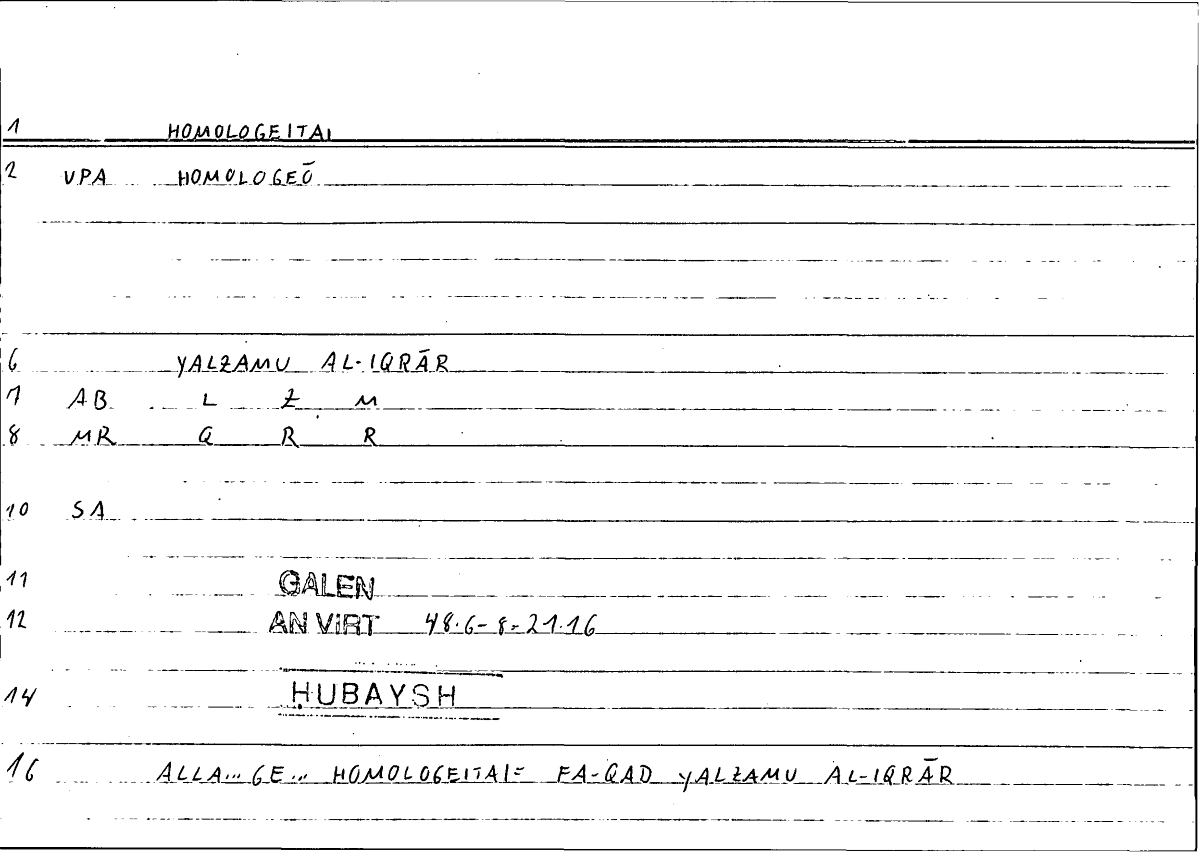 1 HOMOLOGEITAI
2 VPA HOMOLOGEŌ
6 YALZAMU AL-IQRĀR
7 AB L Z M
8 MR Q R R
10 SA
11 GALEN
12 AN VIRT 48.6-8=21.16
14 ḤUBAYSH
16 ALLA... GE... HOMOLOGEITAI= FA-QAD YALZAMU AL-IQRĀR